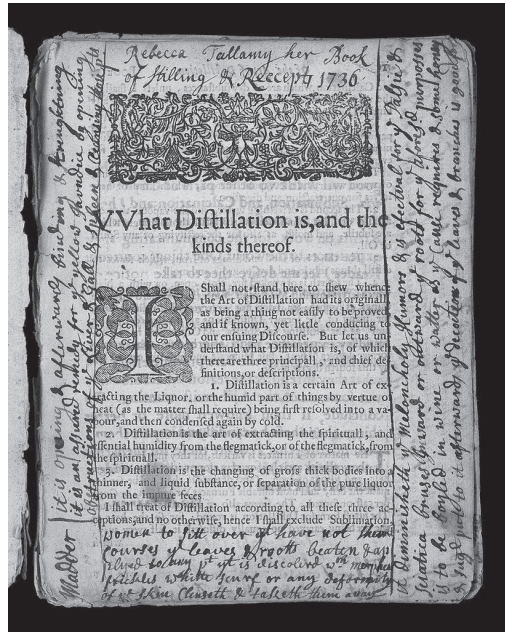 Rebecca Tallamy her Book
of Stilling & Receepts 1736
VVhat Distillation is, and the
kinds thereof.
I Shall not stand here to shew whence
the Art of Distillation had its originall,
as being a thing not easily to be proved
and if known, yet little conducing to
our ensuing Discourse. But let us un-
derstand what Distillation is, of which
there are three principall, and chief de-
finitions, or descriptions.
1. Distillation is a certain Art of ex-
tracting the Liquor, or the humid part of things by vertue of
heat (as the matter shall require) being first resolved into a va-
pour, and then condensed again by cold.
2. Distillation is the art of extracting the spirituall, and
essential humidity from the flegmatick, or of the flegmatick, from
the spirituall.
3. Distillation is the changing of gross thick bodies into a
thinner, and liquid substance, or separation of the pure liquor
from the impure feces
I shall treat of Distillation according to all these three ac-
ceptions, and no otherwise, hence I shall exclude Sublimation,
women to sitt over yt have not their
courses ye leaves & roots beaten & ap
plyed to any pt yt is discolerd wth morphew
frickles white scurf or any deformity
of ye skin clenseth & taketh them away
Madder
it is opening & afterward binding & strengthning
it is an assured remedy for ye yellow Jaundice by opening
obstructions of ye liver & Gall & spleen & Clensing those pts
it deminisheth ye Melancholy Humors & is efectual for ye Palsie &
sciatica bruses inward or outward ye roots for ye aforesd purposes
is to be boyled in wine or water as ye cause requires & some honey
& sugr put to it afterward, ye decoction of ye leaves & branches is good for